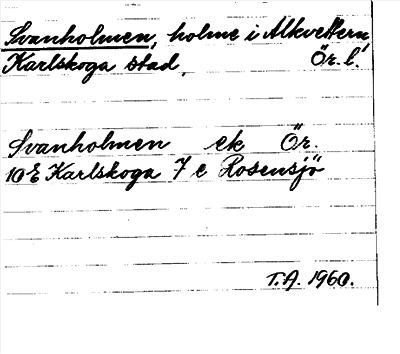 Svanholmen, holme i Alkvettern
Karlskoga stad, Ör. l.
Svanholmen ek Ör.
10E Karlskoga 7 e Rosensjö
T.A. 1960.